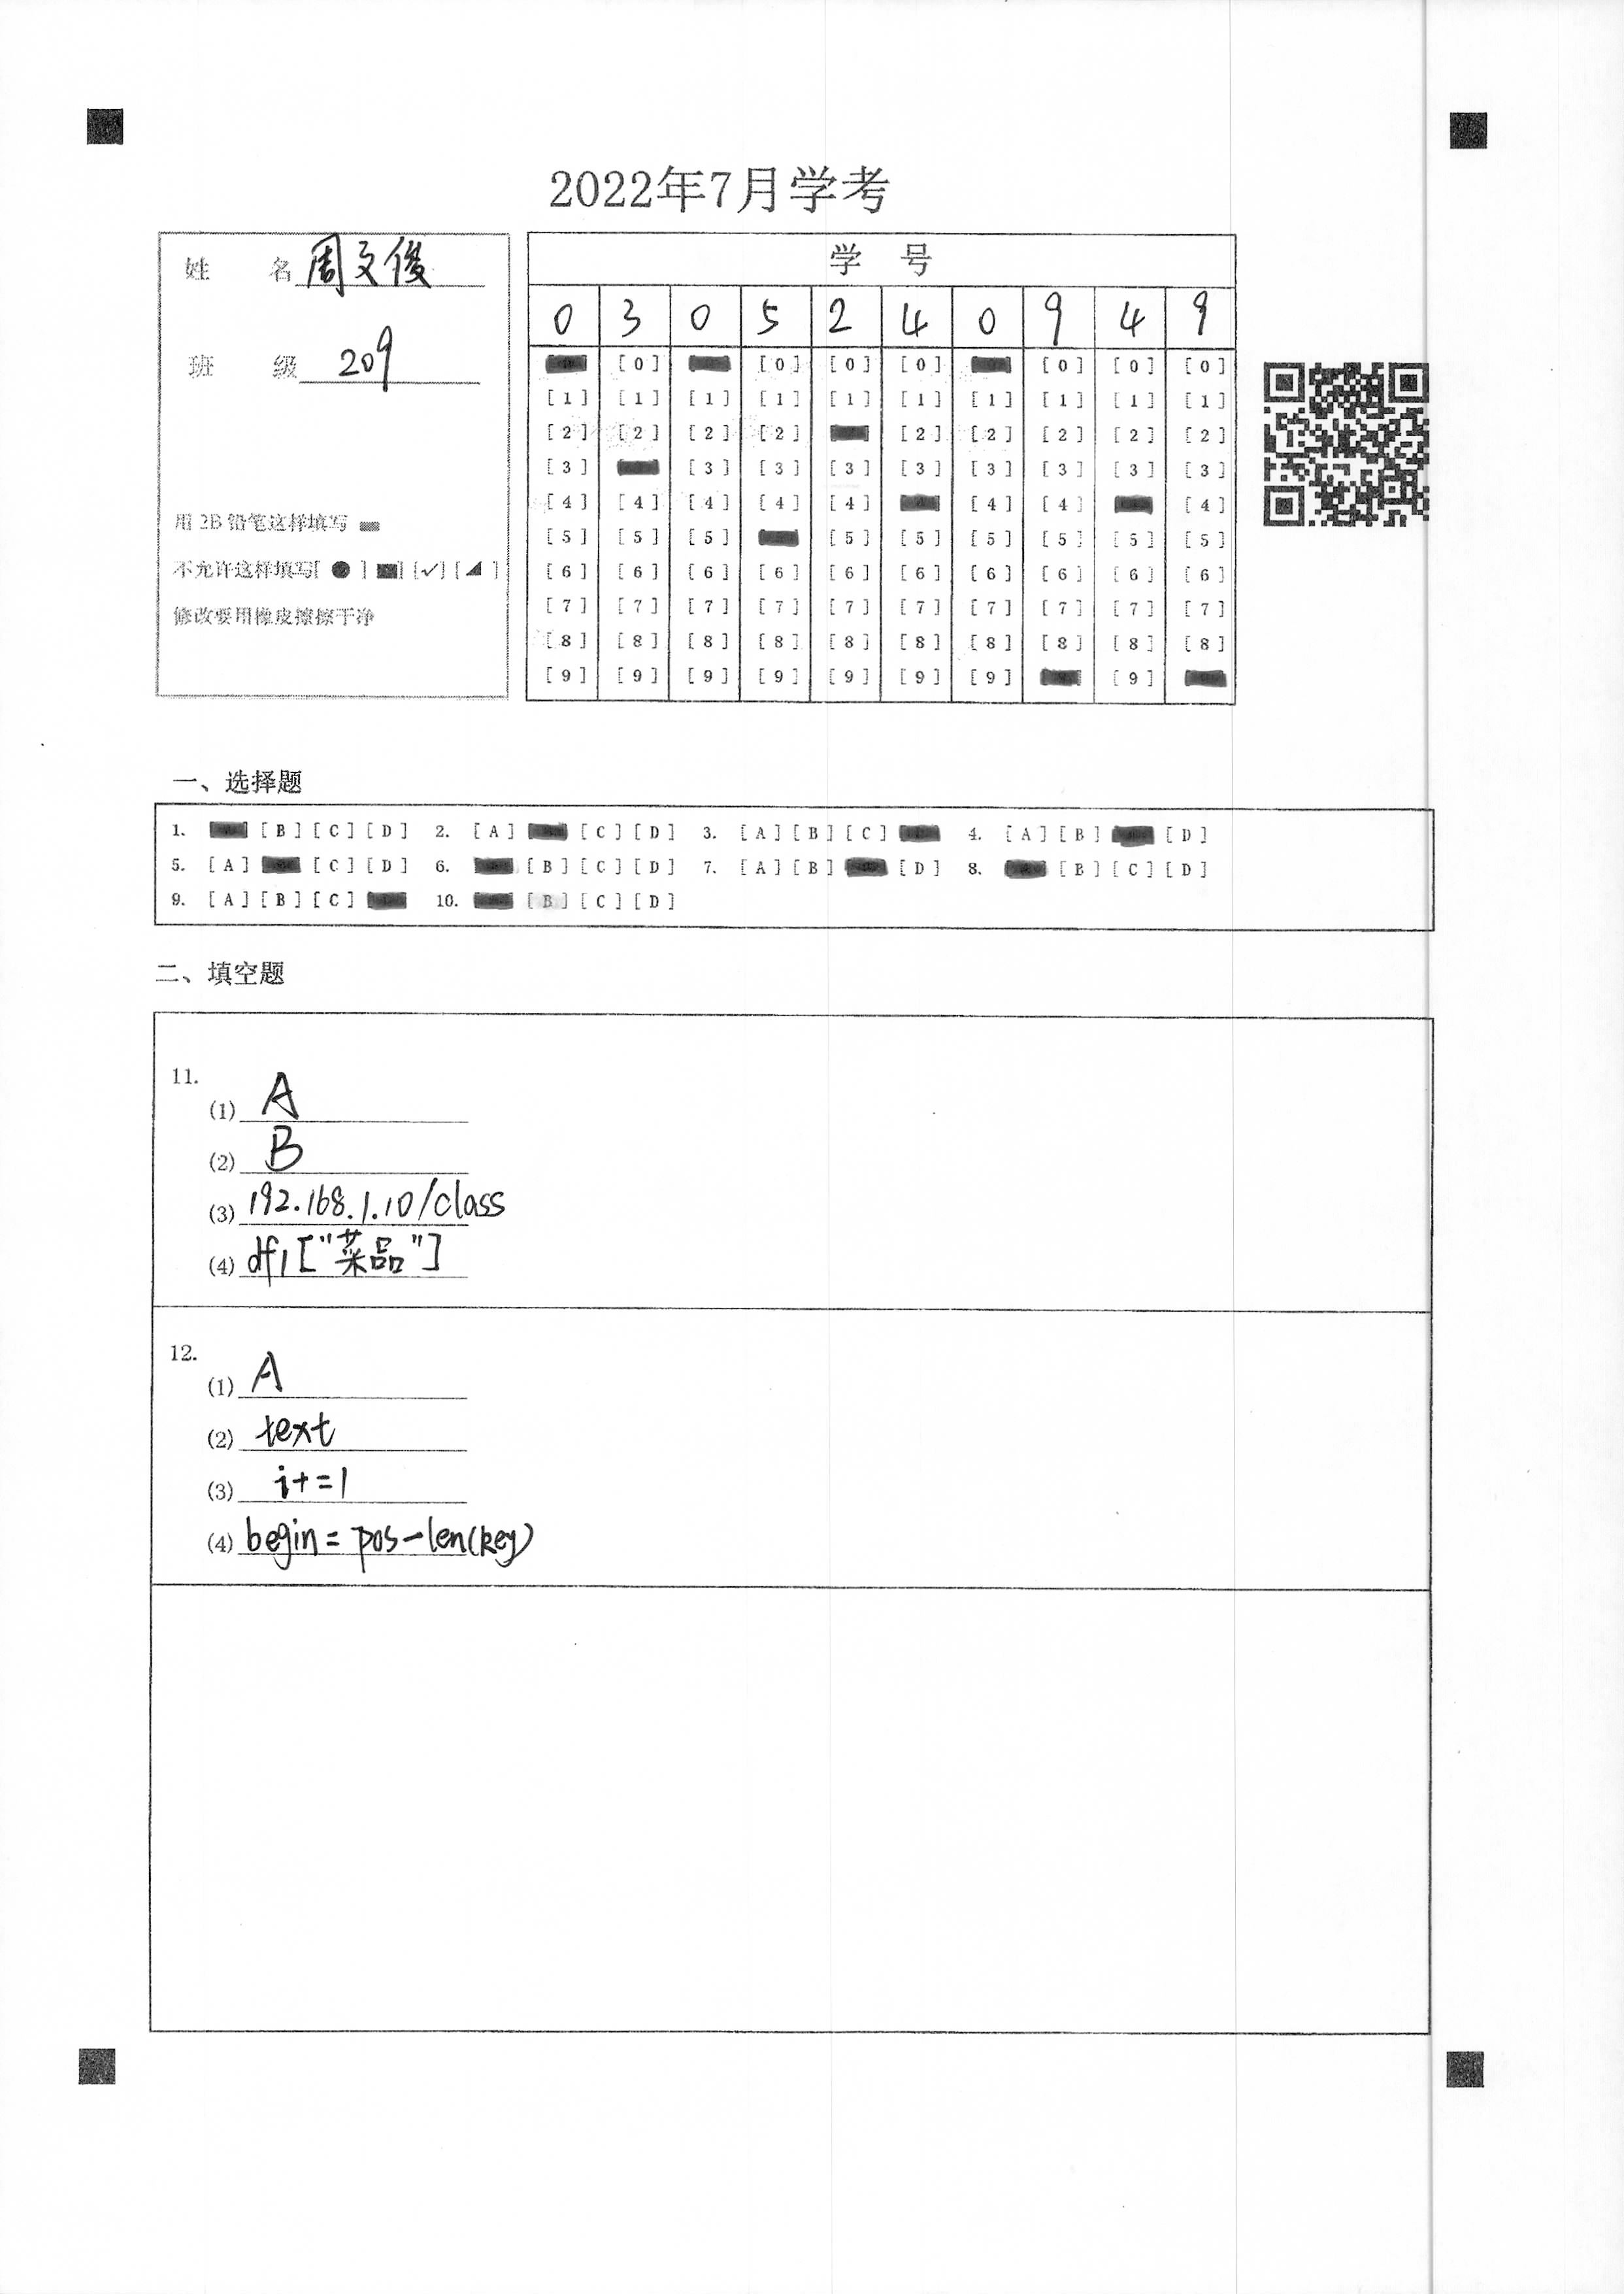 2022年7月学考
姓 名 周文俊
班 级 209
用 2B 铅笔这样填写
不允许这样填写[ ● ] [■] [✓] [◢ ]
修改要用橡皮擦擦干净
学 号
0 3 0 5 2 4 0 9 4 9
[0] [0] [0] [0] [0] [0] [0]
[1] [1] [1] [1] [1] [1] [1] [1] [1] [1]
[2] [2] [2] [2] [2] [2] [2] [2] [2]
[3] [3] [3] [3] [3] [3] [3] [3] [3]
[4] [4] [4] [4] [4] [4] [4] [4]
[5] [5] [5] [5] [5] [5] [5] [5] [5]
[6] [6] [6] [6] [6] [6] [6] [6] [6] [6]
[7] [7] [7] [7] [7] [7] [7] [7] [7] [7]
[8] [8] [8] [8] [8] [8] [8] [8] [8] [8]
[9] [9] [9] [9] [9] [9] [9] [9]
一、选择题
1. [B] [C] [D] 2. [A] [C] [D] 3. [A] [B] [C] 4. [A] [B] [D]
5. [A] [C] [D] 6. [B] [C] [D] 7. [A] [B] [D] 8. [B] [C] [D]
9. [A] [B] [C] 10. [B] [C] [D]
二、填空题
11.
(1) A
(2) B
(3) 192.168.1.10/class
(4) df1["菜品"]
12.
(1) A
(2) text
(3) i+=1
(4) begin=pos-len(key)